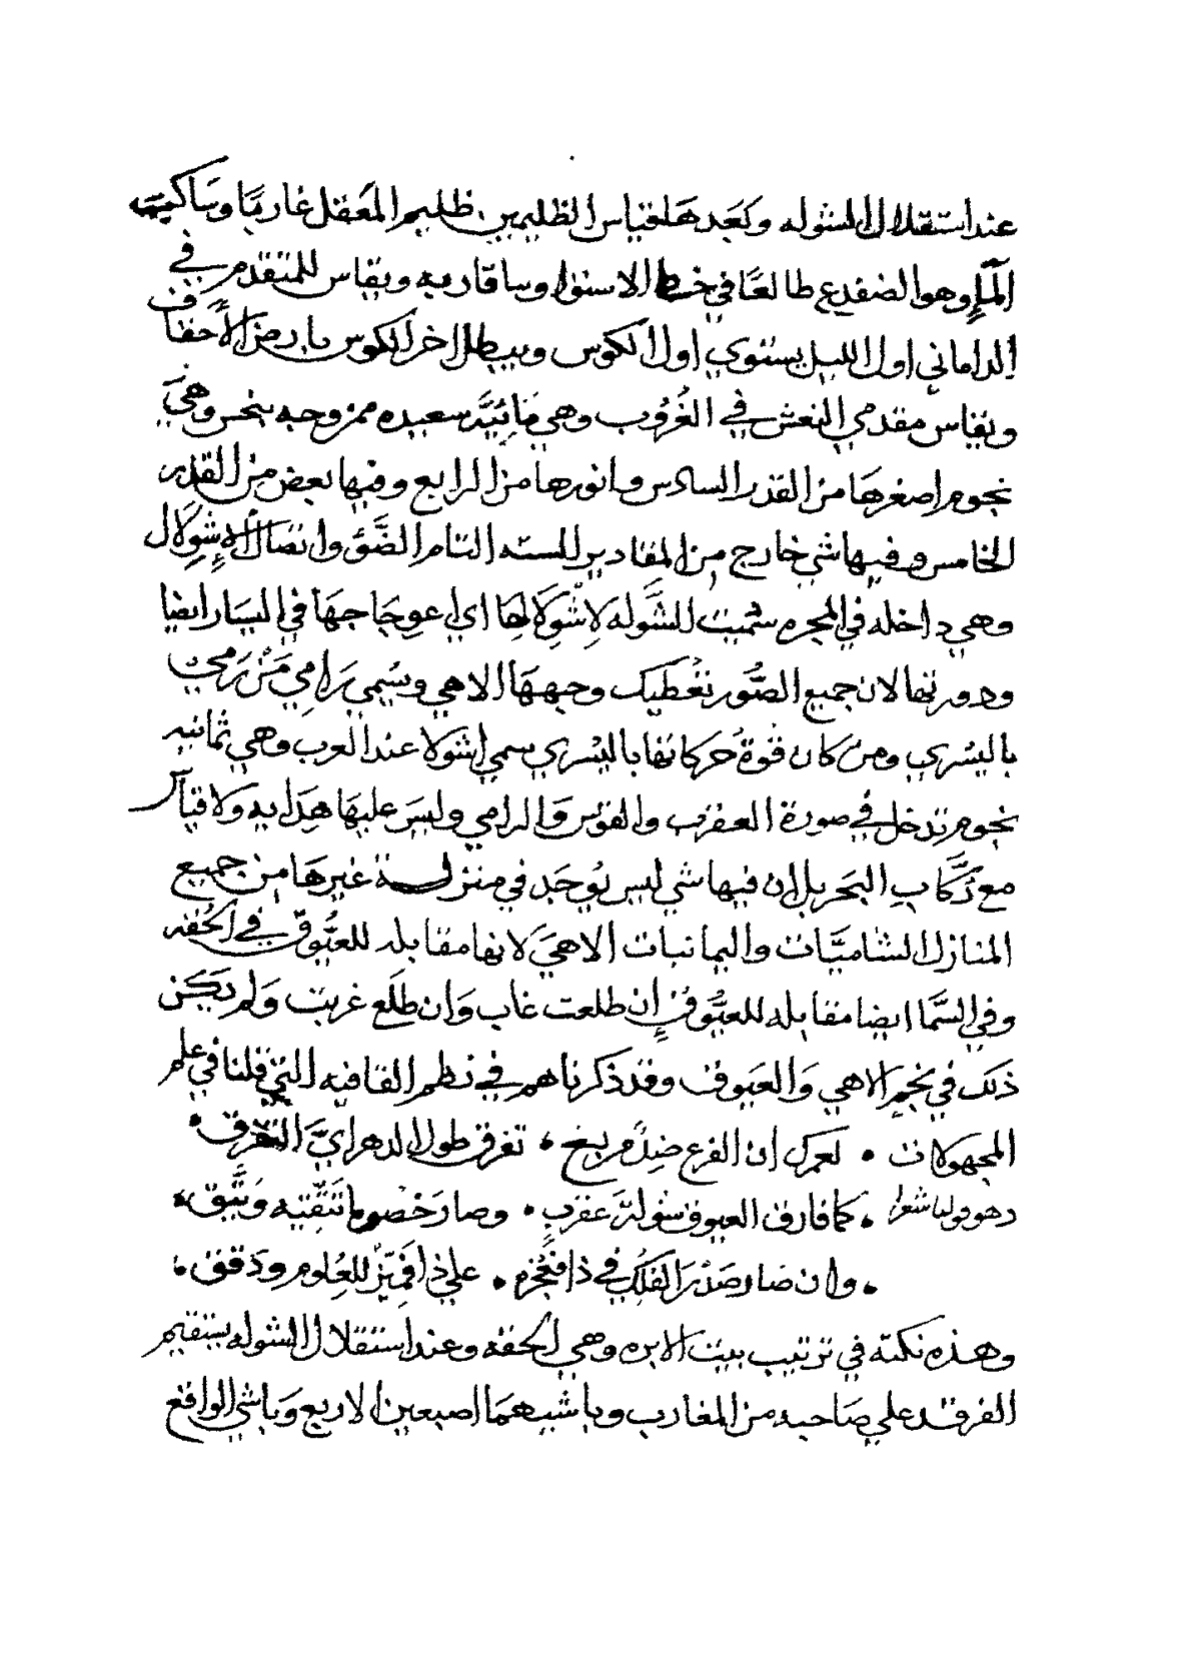 عند استقلال الشوله وكعدها قياس الظليمين ظليم المعقل غاربًا وساكب
المآء وهو الضفدع طالعًا في خط الاستوا وساقاربه ويقاس للمتقدم في
الداماني اول الليل يستوي اول الكوس ويبطل اخر الكوس بارض الأحقاف
ويقاس مقدمي النعش في الغُرُوب وهي مَائيَّه سعيده ممزوجه بنحس وهيَ
نجوم اصغرهَا من القدر السادس وانورها من الرابع وفيها بعض من القدر
الخامس وفيها شي خارج من المقادير السته التام الضَّوّ وانتصال الاشوِلَال
وهي داخله في المجره سُميت الشَّوله لاِشْوِلَالهَا اي اعوِجَاجهَا في اليسَار ايضا
ودورتها لان جميع الصُّوَر تعُطيك وجههَا الا هي ويسُمي رَامِي مَنْ رَمي
باليسُري ومن كان قُوةُ حركاتها باليسُري سمي اشولا عند العرب وهي ثمانيه
نجوم تدخل في صورة العقرب والقوس وَالرامي وليسَ عليهَا هِدَايه وَلا قياس
مع رُكَّابِ البَحر بل ان فيها شي ليس يُوجَد في منزلة غيرهَا من جميع
المنازل الشاميَّات واليمانيات الا هيَ لانها مقابله للعيُّوق في الحُقه
وفي السَّما ايضا مقابله للعيُّوق إِن طلعت غاب وَان طلَع غربت وَلم يَكن
ذلك في نجم الا هي وَالعيوق وقد ذكرناهم في نظم القافيه التي قلنا في علم
المجهولات • لعمرك ان الفرع ضِدُ مريخ • تفرق طول الدهر ايَّ التفرق •
وهو قولنا شعرا • كما فارق العيوق شولةَ عقرب • وصار خصوما تَتَّقيه وَيتَّق •
• وان صار صَدْرَ الفلكِ في ذا • علي ذا فمَيّز للعُلوم ودَقق •
وهذه نكتة في ترتيب بيت الابره وهي الحقه وعند استقلال الشوله يستقيم
الفرقد علي صَاحبه من المغارب وباشيهمَا اصبعين الا ربع وَباشي الواقع